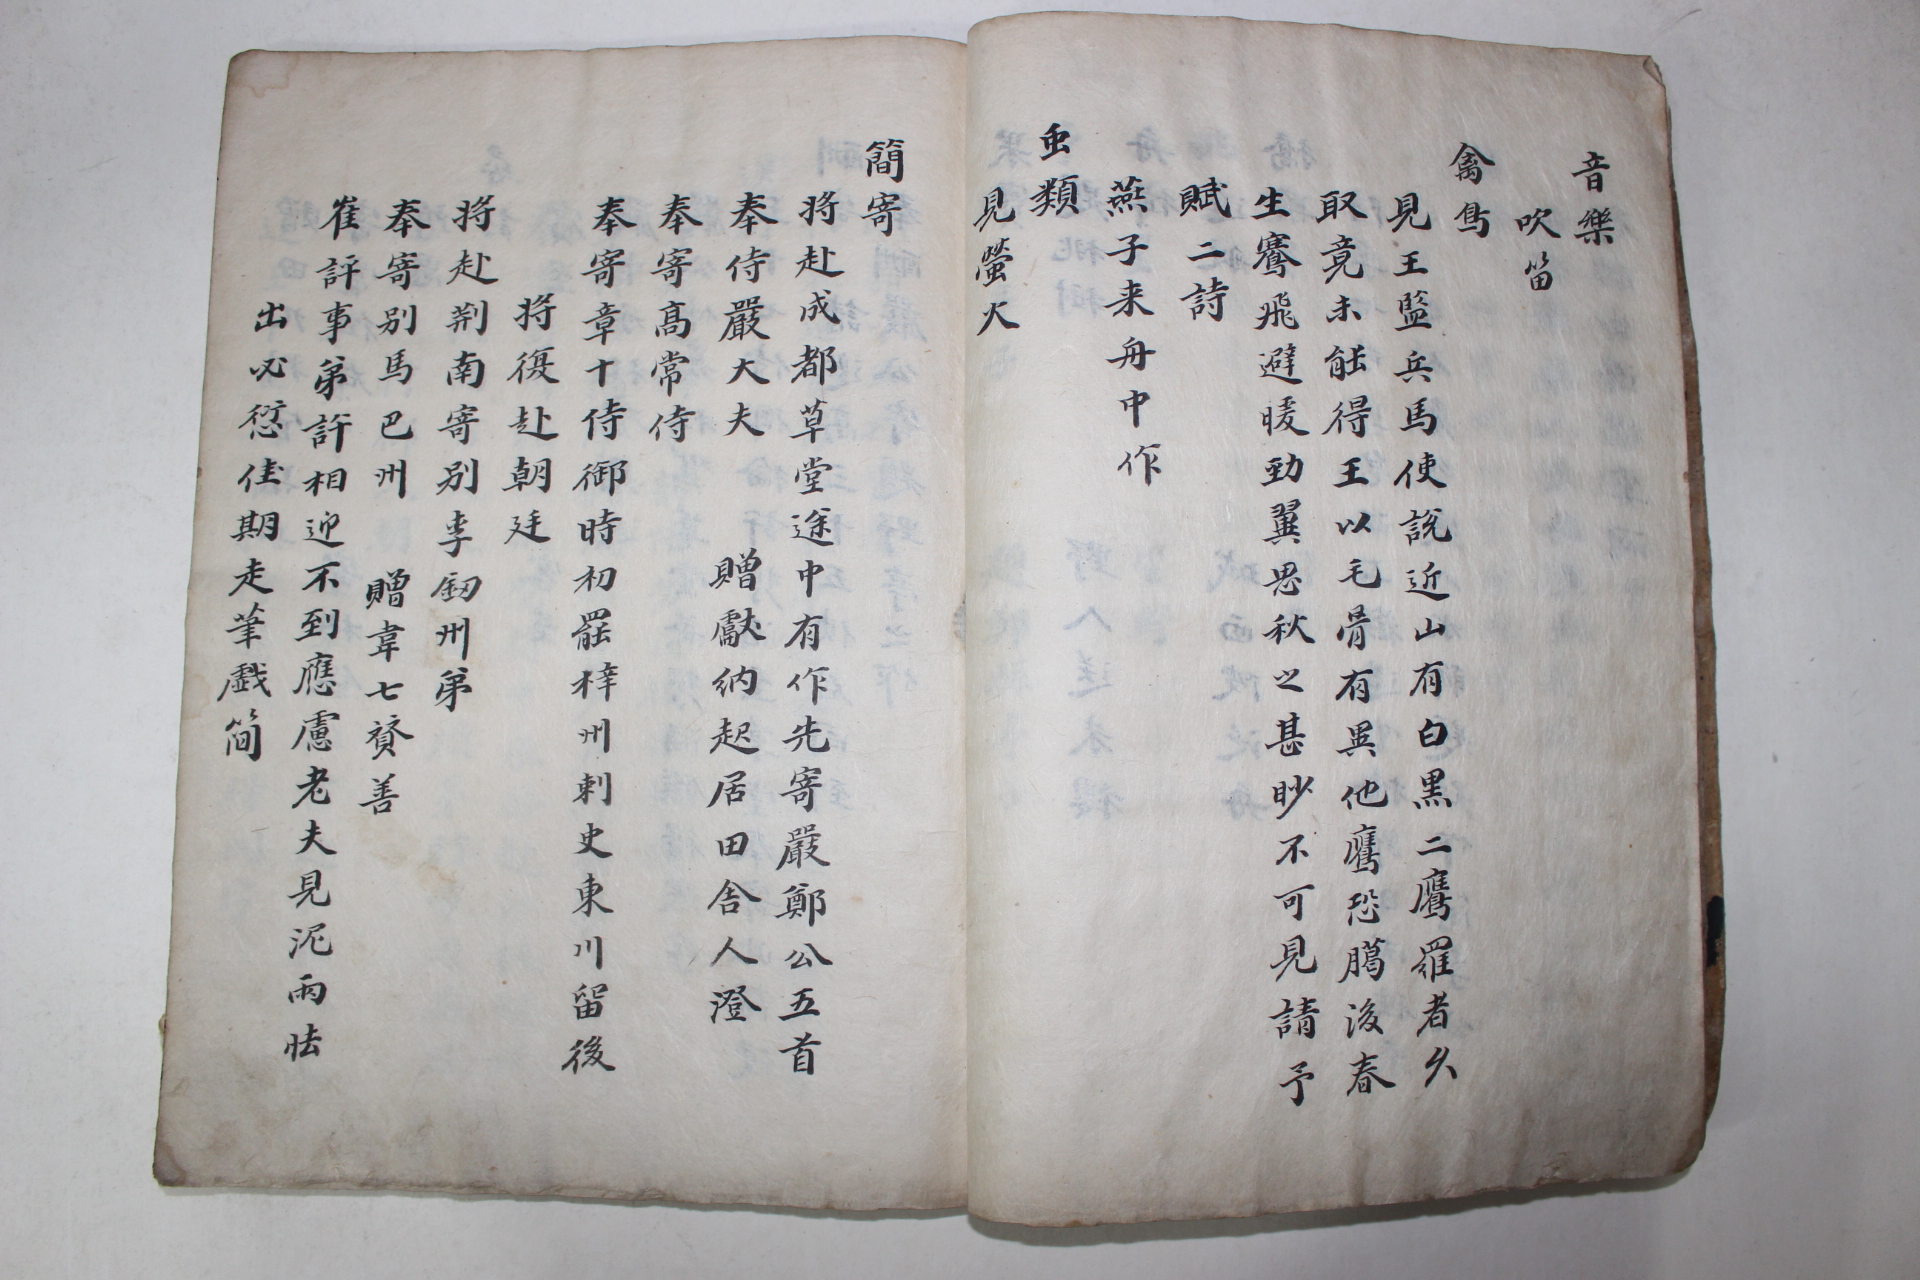 音樂
吹笛
禽鳥
見王監兵馬使說近山有白黑二鷹羅者久
取竟未能得王以毛骨有異他鷹恐臈後春
生騫飛避暖勁翼思秋之甚眇不可見請予
賦二詩
燕子来舟中作
虫類
見螢火
簡寄
將赴成都草堂途中有作先寄嚴鄭公五首
奉侍嚴大夫 贈獻納起居田舍人澄
奉寄高常侍
奉寄章十侍御時初罷梓州刺史東川留後
將復赴朝廷
將赴荆南寄别李釼州弟
奉寄别馬巴州 贈韋七贊善
崔評事弟許相迎不到應慮老夫見泥雨怯
出必愆佳期走筆戲简